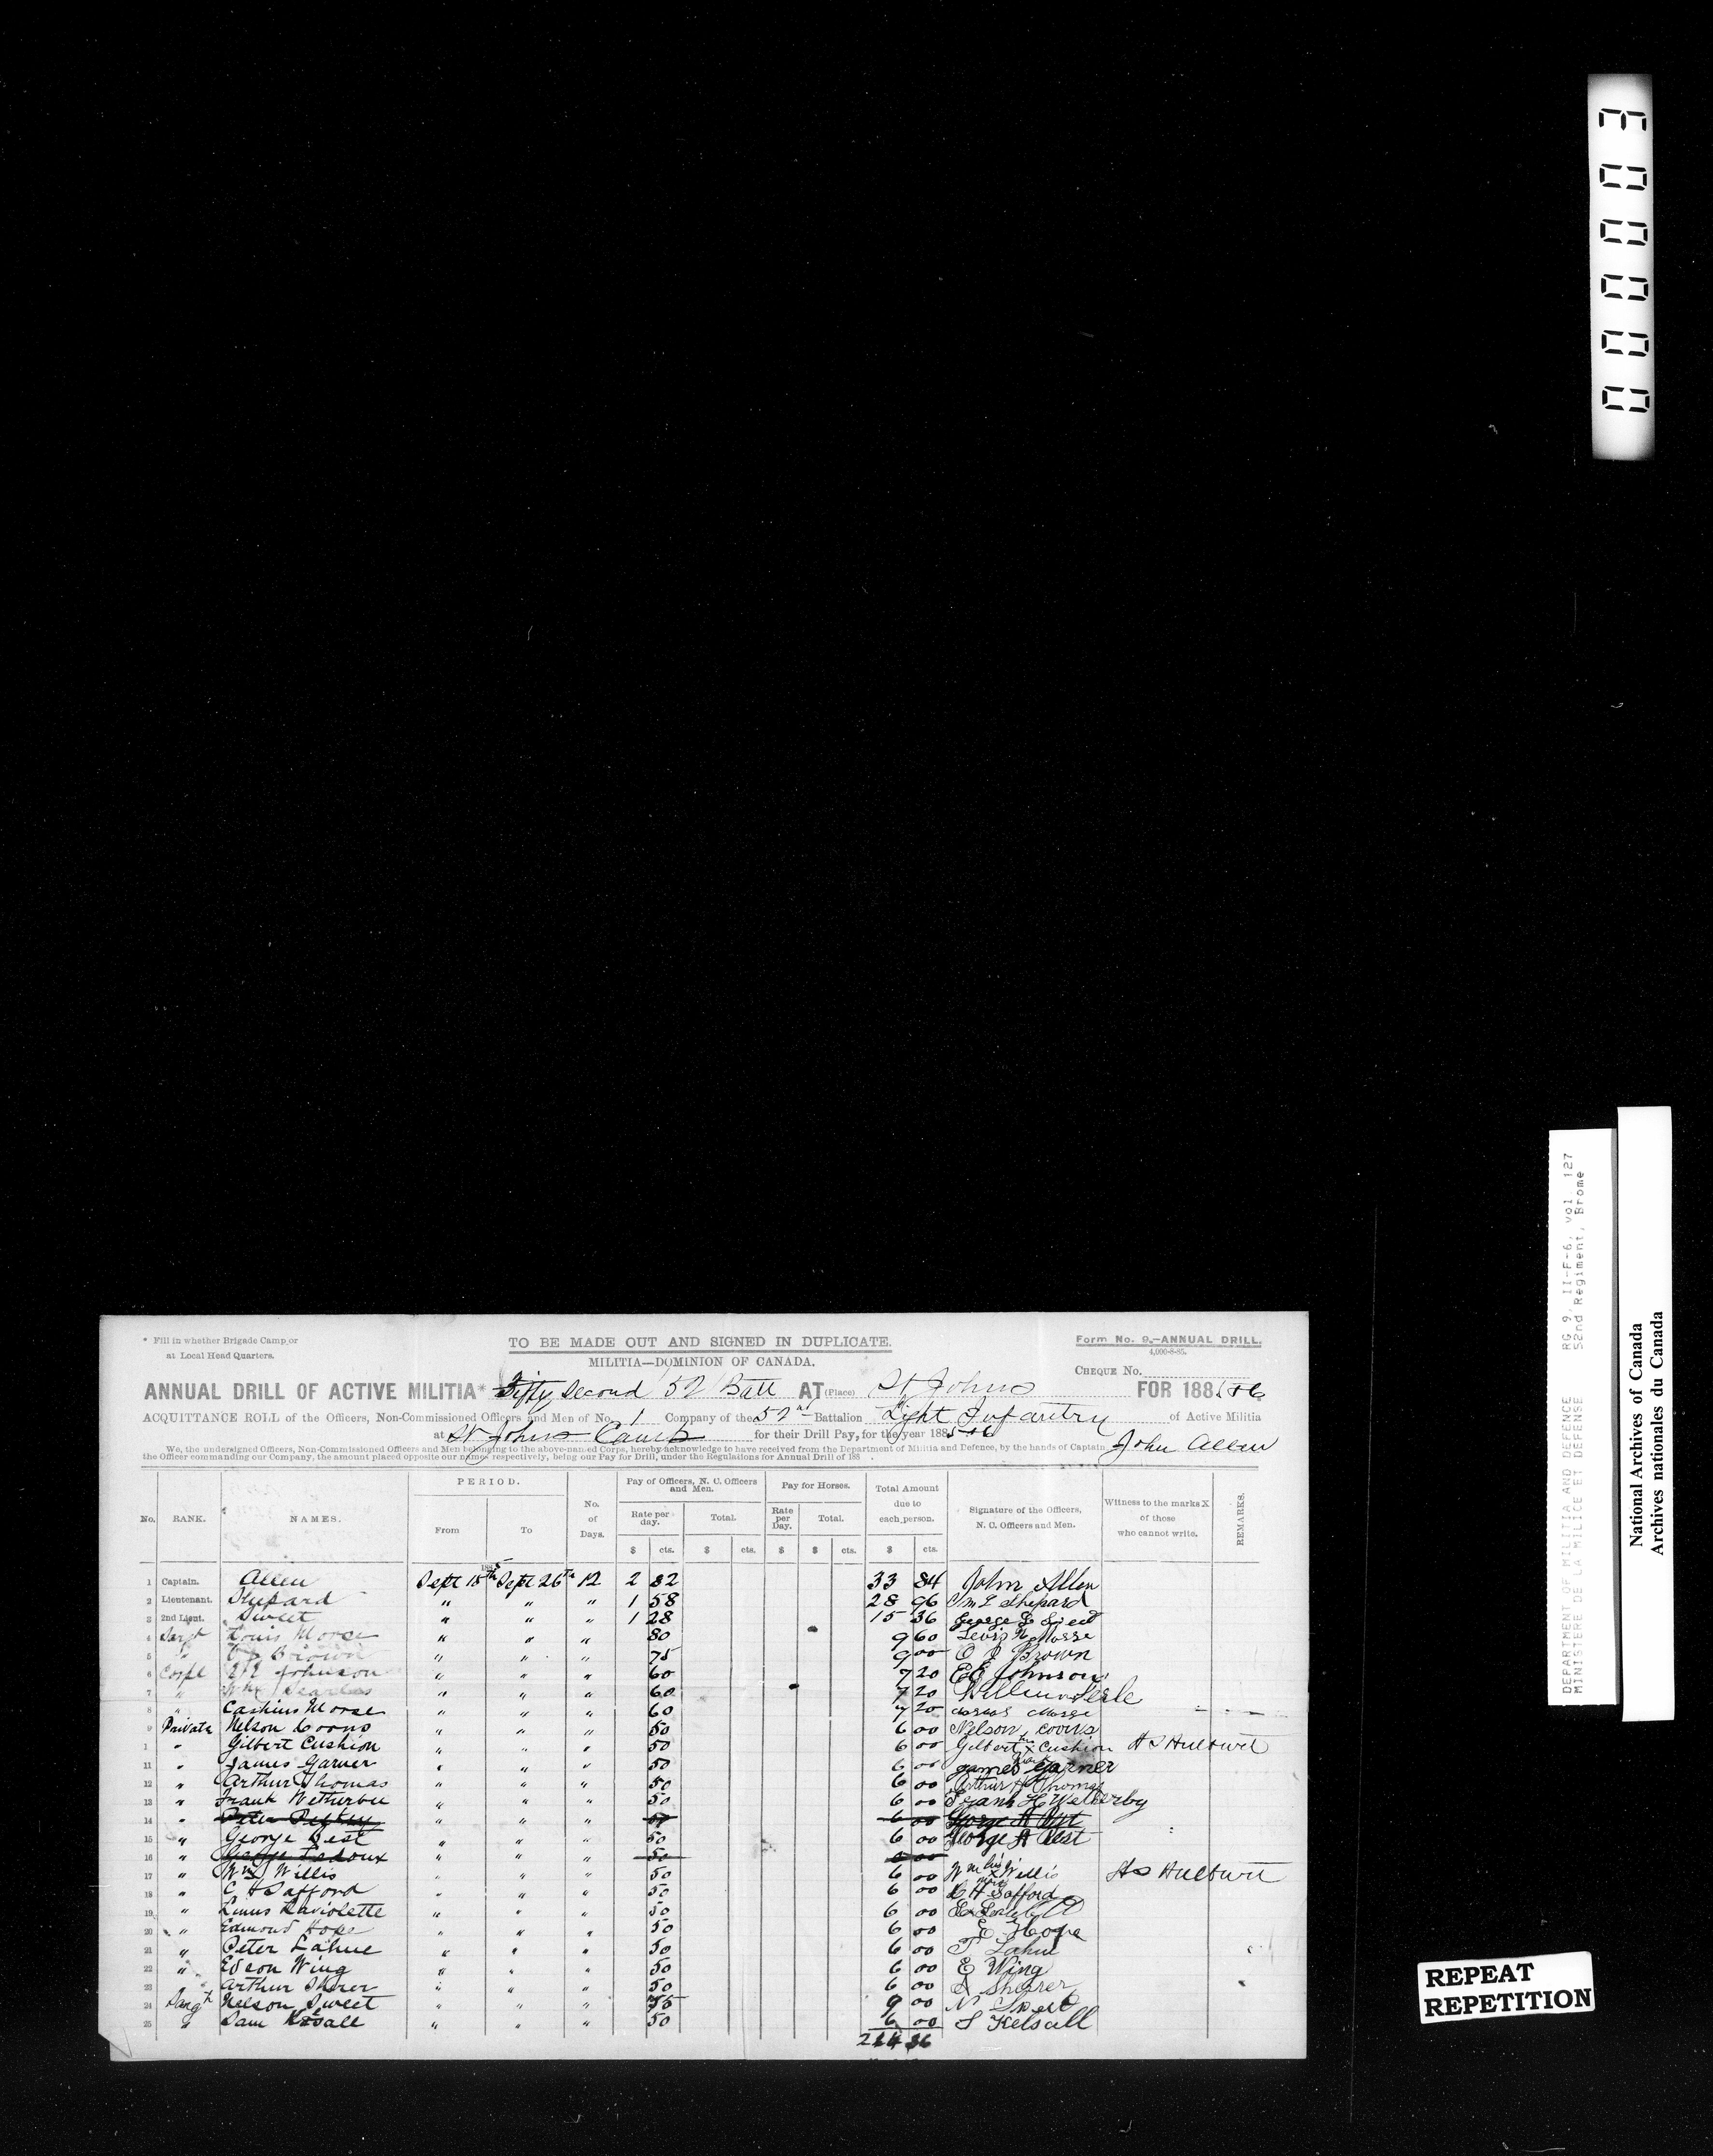 000003
* Fill in whether Brigade Camp or
at Local Head Quarters.
TO BE MADE OUT AND SIGNED IN DUPLICATE.
MILITIA—DOMINION OF CANADA.
Form No. 9.—ANNUAL DRILL.
4,000-8-85.
CHEQUE No.
ANNUAL DRILL OF ACTIVE MILITIA* Fifty Second 52 Batt AT (Place) St Johns FOR 188
ACQUITTANCE ROLL of the Officers, Non-Commissioned Officers and Men of No. 1 Company of the 52nd Battalion Light Infantry of Active Militia
at St Johns Camp for their Drill Pay, for the year 1885-6
We, the undersigned Officers, Non-Commissioned Officers and Men belonging to the above-named Corps, hereby acknowledge to have received from the Department of Militia and Defence, by the hands of Captain John Allen
the Officer commanding our Company, the amount placed opposite our names respectively, being our Pay for Drill, under the Regulations for Annual Drill of 188 .
No. RANK. NAMES. PERIOD. From To No. of Days. Pay of Officers, N. C. Officers and Men. Rate per day. $ cts. Total. $ cts. Pay for Horses. Rate per Day. $ Total. $ cts. Total Amount due to each person. $ cts. Signature of the Officers, N. C. Officers and Men. Witness to the marks X of those who cannot write. REMARKS.
1885
1 Captain. Allen Sept 15th Sept 26th 12 2 82 33 84 John Allen
2 Lieutenant. Shepard " " " 1 58 28 96 Shepard
3 2nd Lieut. Sweet " " " 1 28 15 36 George Sweet
4 Sargt Louis Morse " " " 80 9 60 Morse
5 " Brown " " " 75 9 00 O Brown
6 Corpl E E Johnson " " " 60 7 20 E E Johnson
7 " Wm Searles " " " 60 7 20 William
8 " Cashius Morse " " " 60 7 20 Morse
9 Private Nelson Coons " " " 50 6 00 Nelson Coons
1 " Gilbert Cushion " " " 50 6 00 Gilbert his X mark Cushion H S Hulburt
11 " James Garner " " " 50 6 00 James Garner
12 " Arthur Thomas " " " 50 6 00 Arthur H Thomas
13 " Frank Wetherbee " " " 50 6 00 Frank H Wetherby
14 " Peter " " " 50 6 00 George A West
15 " George West " " " 50 6 00 George A West
16 " George Ledoux " " " 50 6 00
17 " Wm Willis " " " 50 6 00 Wm his X mark Willis H S Hulburt
18 " C H Safford " " " 50 6 00 C H Safford
19 " Linus Laviolette " " " 50 6 00
20 " Edmond Hope " " " 50 6 00 E Hope
21 " Peter Lahue " " " 50 6 00 P Lahue
22 " Edson Wing " " " 50 6 00 E Wing
23 " Arthur Sherer " " " 50 6 00 A Sherer
24 Sargt Nelson Sweet " " " 75 9 00 N Sweet
25 " Sam Kelsall " " " 50 6 00 S Kelsall
DEPARTMENT OF MILITIA AND DEFENCE RG 9, II-F-6, vol. 127
MINISTERE DE LA MILICE ET DEFENSE 52nd Regiment, Brome
National Archives of Canada
Archives nationales du Canada
REPEAT
REPETITION